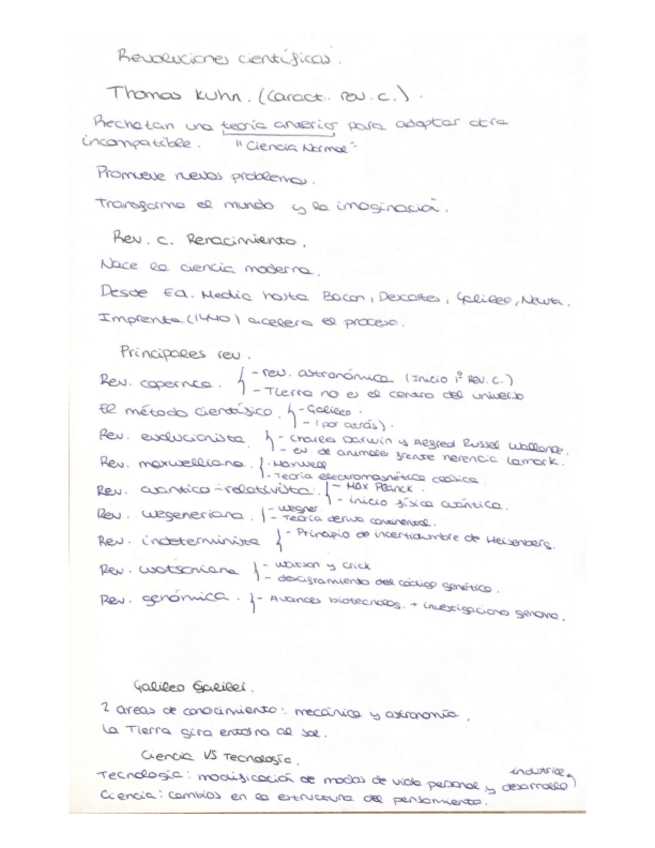 Revoluciones científicas.
Thomas Kuhn. (Caract. rev. c.).
Rechazan una teoría anterior para adoptar otra
incompatible. "Ciencia Normal"
Promueve nuevos problemas.
Transforma el mundo y la imaginación.
Rev. c. Renacimiento.
Nace la ciencia moderna.
Desde Ed. Media hasta Bacon, Descartes, Galileo, Newton.
Imprenta (1440) acelera el proceso.
Principales rev.
Rev. copernica. - rev. astronómica (Inicio 1º Rev. c.)
- Tierra no es el centro del universo
El método científico. - Galileo.
- (por atrás).
Rev. evolucionista. - Charles Darwin y Alfred Russel Wallance.
- ev. de animales frente herencia Lamark.
Rev. maxwelliana. - Maxwell
- Teoría electromagnética clásica.
Rev. cuántico-relativista. - Max Planck.
- inicio física cuántica.
Rev. wegeneriana. - wegner
- Teoría deriva continental.
Rev. indeterminista - Principio de incertidumbre de Heisenberg.
Rev. watsoniana - Watson y Crick
- desciframiento del código genético.
Rev. genómica. - Avances biotecnolog. + investigaciones genoma.
Galileo Galilei.
2 areas de conocimiento: mecánica y astronomía.
La Tierra gira entorno al sol.
Ciencia VS Tecnología.
Tecnología: modificación de modos de vida personal y desarrollo industrial
Ciencia: cambios en la estructura del pensamiento.